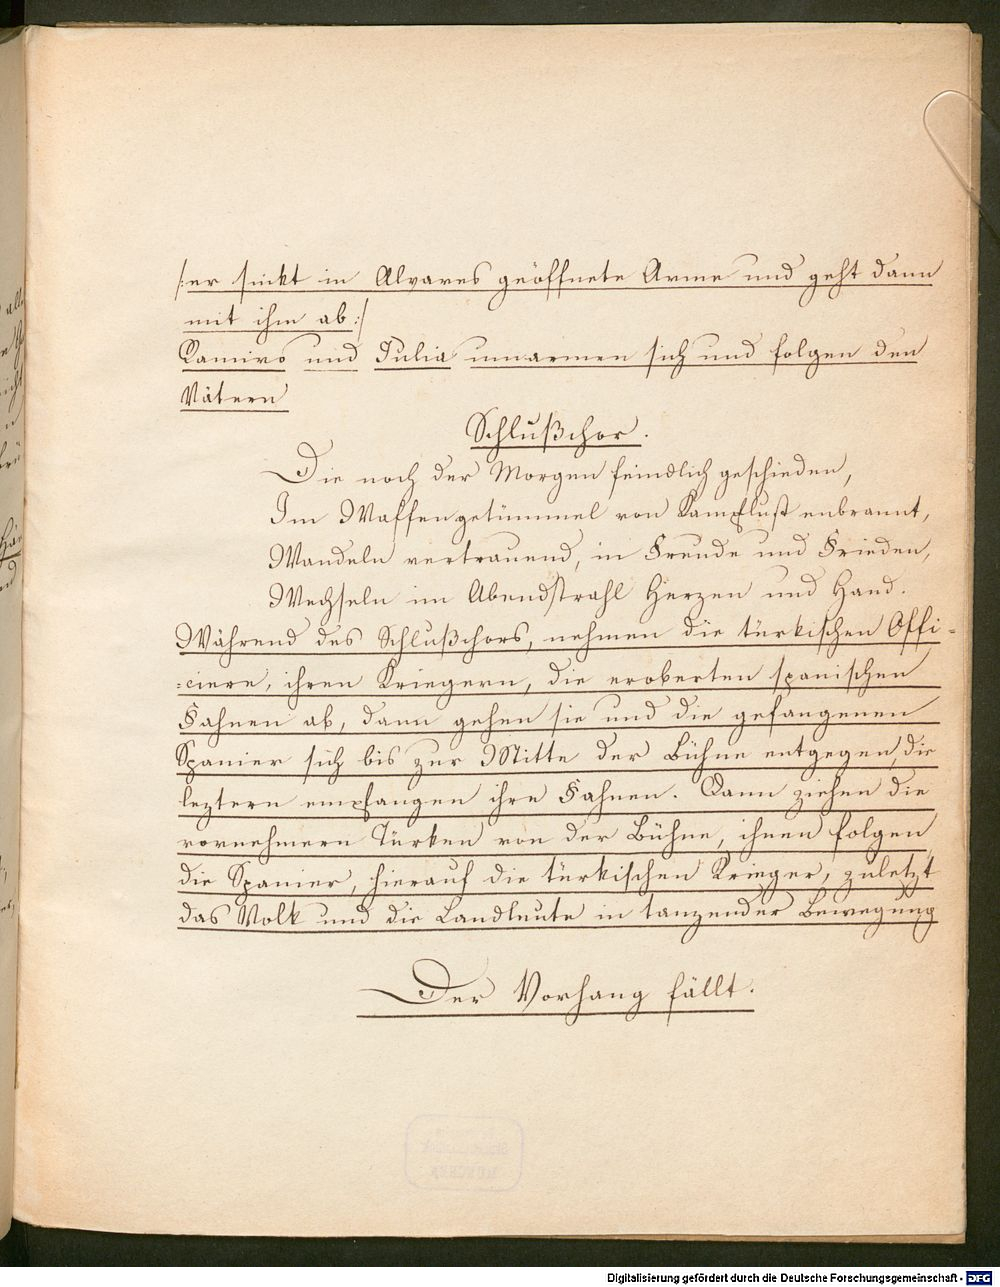 /:er sinkt in Alvares geöffnete Arme und geht dann
mit ihm ab:/
Ramiro und Julia umarmen sich und folgen den
Vätern
Schlußchor.
Die noch der Morgen feindlich geschieden,
Im Waffengetümmel von Kampflust enbrannt,
Wandeln vertrauend, in Freude und Frieden,
Wechseln im Abendstrahl Herzen und Hand.
Während des Schlußchors, nehmen die türkischen Offi=
=ciere, ihren Kriegern, die eroberten spanischen
Fahnen ab, dann gehen sie und die gefangenen
Spanier sich bis zur Mitte der Bühne entgegen, die
leztern empfangen ihre Fahnen. Dann ziehen die
vornehmern Türken von der Bühne, ihnen folgen
die Spanier, hierauf die türkischen Krieger, zuletzt
das Volk und die Landleute in tanzender Bewegung
Der Vorhang fällt.
Digitalisierung gefördert durch die Deutsche Forschungsgemeinschaft - DFG